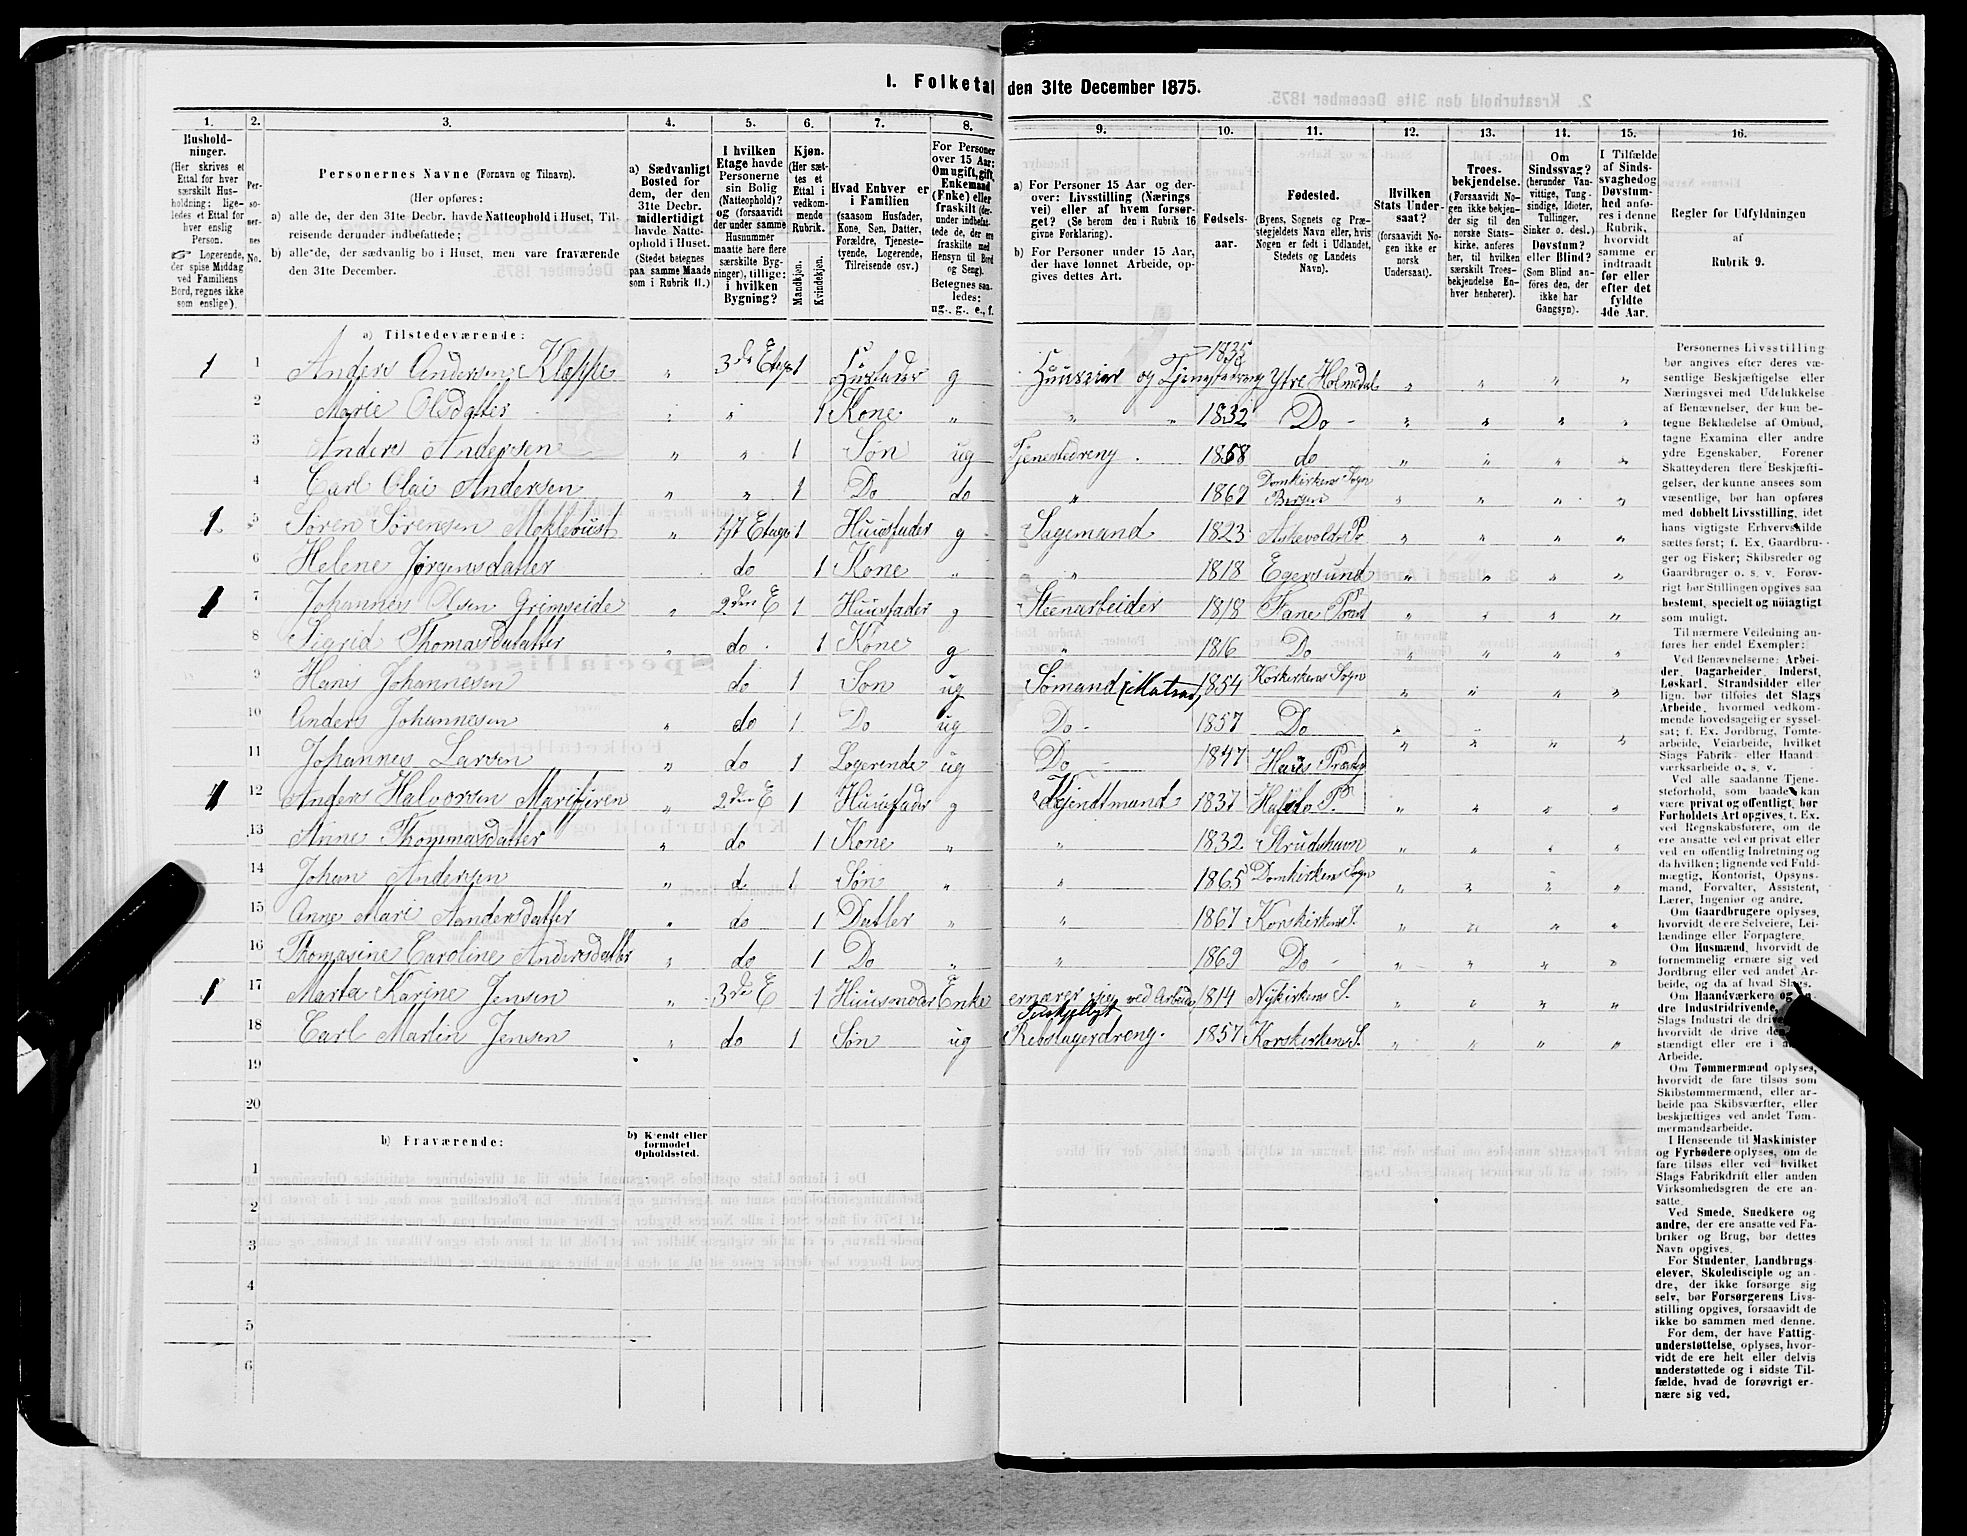 1. Folketal den 31te December 1875.
1. 2. 3. 4. 5. 6. 7. 8. 9. 10. 11. 12. 13. 14. 15. 16.
Hushold-
ninger.
(Her skrives et
Ettal for hver
særskilt Hus-
holdning; lige-
ledes et Ettal for
hver enslig
Person.
Logerende,
der spise Middag
ved Familiens
Bord, regnes ikke
som enslige).
Per-
so-
ner-
nes
No.
Personernes Navne (Fornavn og Tilnavn).
(Her opføres:
a) alle de, der den 31te Decbr. havde Natteophold i Huset, Til-
reisende derunder indbefattede;
b) alle de, der sædvanlig bo i Huset, men vare fraværende
den 31te December.
a) Sædvanligt
Bosted for
dem, der den
31te Decbr.
midlertidigt
havde Natte-
ophold i Huset.
(Stedet betegnes
paa samme Maade
som i Rubrik 11.)
I hvilken
Etage havde
Personerne
sin Bolig
(Natteophold)?
og (forsaavidt
der under samme
Husnummer
maatte høre flere
særskilte Byg-
ninger), tillige:
i hvilken
Bygning?
Kjøn.
(Her sæt-
tes et
Ettal i
vedkom-
mende
Rubrik.
Mandkjøn.
Kvindekjøn.
Hvad Enhver er
i Familien
(saasom Husfader,
Kone, Søn, Datter,
Forældre, Tjeneste-
tyende, Logerende,
Tilreisende osv.)
For Personer
over 15 Aar:
Om ugift, gift,
Enkemand
(Enke) eller
fraskilt (der-
under indbefat-
tede de, der ere
fraskilte med
Hensyn til Bord
og Seng).
Betegnes saa-
ledes:
ug., g., e., f.
a) For Personer 15 Aar og der-
over: Livsstilling (Nærings
vei) eller af hvem forsør-
get? (Se herom den i Rubrik 16
givne Forklaring).
b) For Personer under 15 Aar,
der have lønnet Arbeide, op-
gives dettes Art.
Fødsels-
aar.
Fødested.
(Byens, Sognets og Præ-
stegjeldets Navn eller, hvis
Nogen er født i Udlandet,
Stedets og Landets
Navn).
Hvilken
Stats Under-
saat?
(forsaavidt No-
gen ikke er
norsk
Undersaat).
Troes-
bekjendelse.
(Forsaavidt No-
gen ikke bekjen-
der sig til den
norske Stats-
kirke, anføres
her, til hvilken
særskilt Troes-
bekjendelse En-
hver henhører).
Om
Sindssvag?
(herunder Van-
vittige, Tung-
sindige, Idioter,
Tullinger,
Sinker o. desl.)
Døvstum?
eller Blind?
(Som Blind an-
føres den, der
ikke har
Gangsyn).
I Tilfælde
af Sinds-
svaghed og
Døvstum-
hed anfø-
res i denne
Rubrik,
hvorvidt
samme er
indtraadt
før eller
efter det
fyldte
4de Aar.
Regler for Udfyldningen
af
Rubrik 9.
a) Tilstedeværende:
1 1 Anders Andersen Kleppe " 3de Etage 1 Husfader g Huuseier og Tjenestedreng 1835 Ytre Holmedal " " " "
2 Marie Olsdatter " " 1 Kone " " 1832 Do " " " "
3 Anders Andersen " " 1 Søn ug Tjenestedreng 1858 do " " " "
4 Carl Olai Andersen " " 1 Do do " 1869 Domkirkens Sogn Bergen " " " "
1 5 Søren Sørensen Moklebust " 1st Etage 1 Huusfader g Sagemand 1823 Askevolds P " " " "
6 Helene Jørgensdatter do 1 Kone " " 1818 Egersund " " " "
1 7 Johannes Olsen Grimseide " 2den E 1 Huusfader g Steenarbeider 1818 Fane Præst " " " "
8 Sigrid Thomasdatter " do 1 Kone g " 1816 Do " " " "
9 Hans Johannesen do 1 Søn ug Sømand (Matros) 1854 Korkirkens Sogn " " " "
10 Anders Johannesen " do 1 Do ug Do 1857 Do "
11 Johannes Larsen " do 1 Logerende ug Do 1847 Haus Præstg " " " "
1 12 Anders Halvorsen Marifjæren " 2den E 1 Huusfader g Kjendtmand 1837 Hafslo P. " " " "
13 Anne Thommasdatter " do 1 Kone " " 1832 Strudshavn " " " "
14 Johan Andersen " d 1 Søn " " 1865 Domkirkens Sogn " " " "
15 Anne Mari Andersdatter " do 1 Datter " " 1867 Korskirkens S. " " " "
16 Thomasine Caroline Andersdatter " do 1 Do " " 1869 Do " " " "
1 17 Marta Karine Jensen " 3de E 1 Huusmoder Enke ernærer sig ved Arbeide 1814 Nykirkens S. " " " "
18 Carl Martin Jensen " do 1 Søn ug Rebslagerdreng. 1857 Korskirkens S. " " " "
19
20
b) Fraværende:
b) Kjendt eller
formodet
Opholdssted.
1
2
3
4
5
6
Personernes Livsstilling
bør angives efter deres væ-
sentlige Beskjæftigelse eller
Næringsvei med Udelukkelse
af Benævnelser, der kun be-
tegne Beklædelse af Ombud,
tagne Examina eller andre
ydre Egenskaber. Forener
Skatteyderen flere Beskjæfti-
gelser, der kunne ansees som
væsentlige, bør han opføres
med dobbelt Livsstilling, idet
hans vigtigste Erhvervskilde
sættes først; f. Ex. Gaardbru-
ger og Fisker; Skibsreder og
Gaardbruger o. s. v. Forøv-
rigt bør Stillingen opgives saa
bestemt, specielt og nøiagtigt
som muligt.
Til nærmere Veiledning an-
føres her endel Exempler:
Ved Benævnelserne: Arbei-
der, Dagarbeider, Inderst,
Løskarl, Strandsidder eller
lign. bør tilføies det Slags
Arbeide, hvormed vedkom-
mende hovedsagelig er syssel-
sat; f. Ex. Jordbrug, Tomte-
arbeide, Veiarbeide, hvilket
Slags Fabrik- eller Haand
værksarbeide o. s. v.
Ved alle saadanne Tjene-
steforhold, som baade kan
være privat og offentligt, bør
Forholdets Art opgives, f. Ex.
ved Regnskabsførere, om de
ere ansatte ved en privat eller
ved en offentlig Indretning og
da hvilken; lignende ved Fuld-
mægtig, Kontorist, Opsyns-
mand, Forvalter, Assistent,
Lærer, Ingeniør og andre.
Om Gaardbrugere oplyses,
hvorvidt de ere Selveiere, Lei-
lændinge eller Forpagtere.
Om Husmænd, hvorvidt de
fornemmelig ernære sig ved
Jordbrug eller ved andet Ar-
beide, og da af hvad Slags.
Om Haandværkere og an-
dre Industridrivende,
Slags Industri de drive
hvorvidt de drive de
stændigt eller ere i
Arbeide.
Om Tømmermænd oplyses,
hvorvidt de fare tilsøs som
Skibstømmermænd, eller ar-
beide paa Skibsværfter, eller
beskjæftiges ved andet Tøm-
mermandsarbeide.
I Henseende til Maskinister
og Fyrbødere oplyses, om de
fare tilsøs eller ved hvilket
Slags Fabrikdrift eller anden
Virksomhedsgren de ere an-
satte.
Ved Smede, Snedkere og
andre, der ere ansatte ved Fa-
briker og Brug, bør dettes
Navn opgives.
For Studenter, Landbrugs-
elever, Skoledisciple og an-
dre, der ikke forsørge sig
selv, bør Forsørgerens Livs-
stilling opgives, forsaavidt de
ikke bo sammen med denne.
For dem, der have Fattig-
understøttelse, oplyses, hvor-
vidt de ere helt eller delvis
understøttede og i sidste Til-
fælde, hvad de forøvrigt er-
nære sig ved.